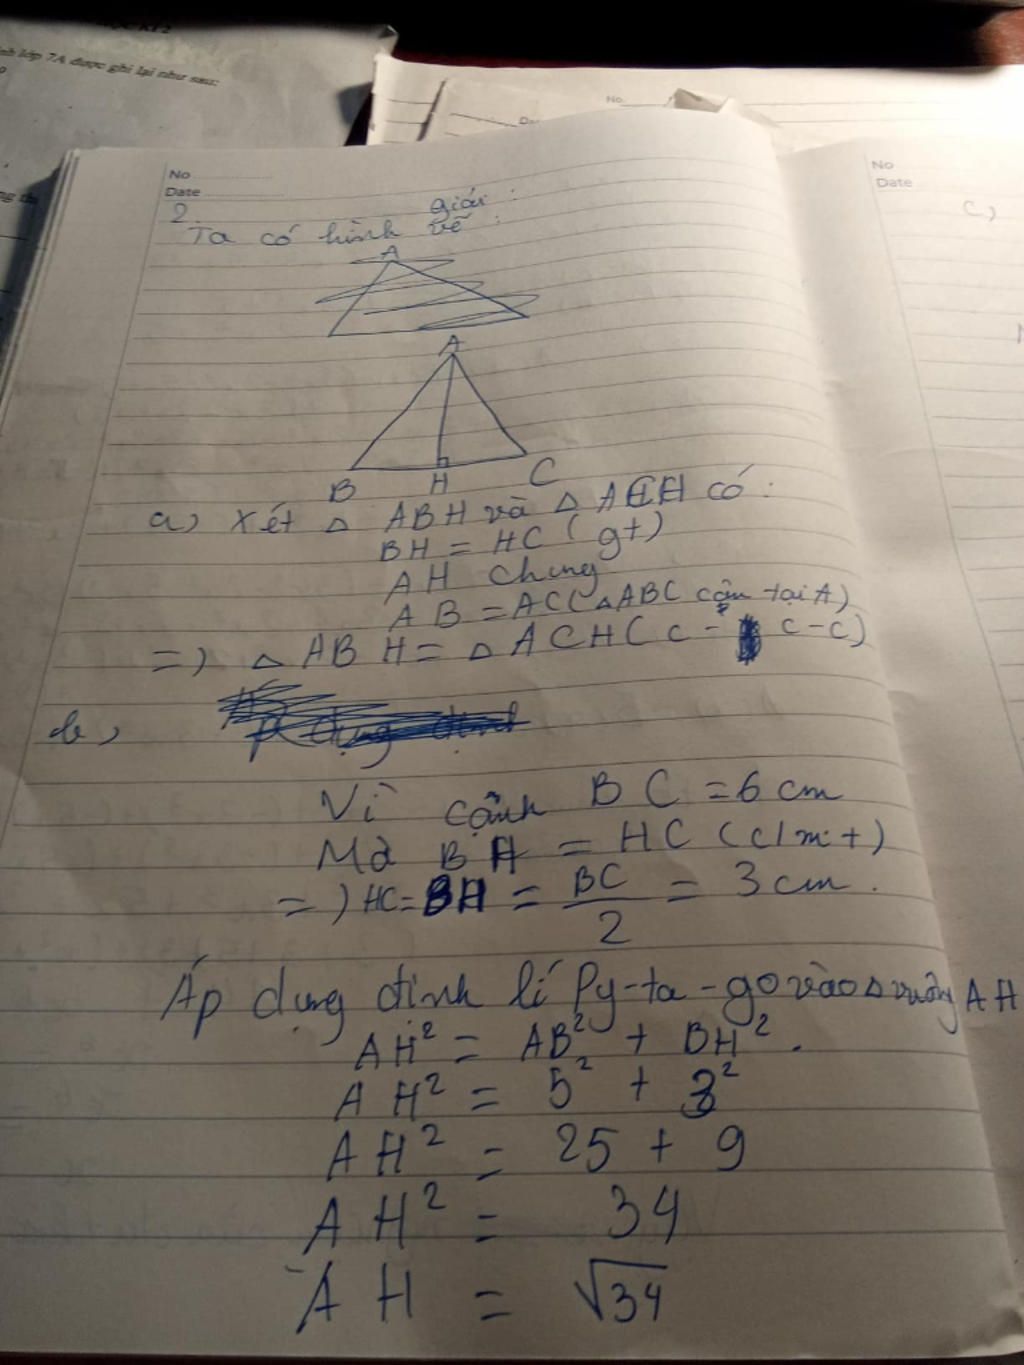 nh lớp 7A được ghi lại như sau:
No
No
Date
No
Date
2.
giải :
Ta có hình vẽ :
A
A
B
H
C
a) Xét △ ABH và △ ACH có :
BH = HC (gt)
AH chung
AB = AC (△ABC cân tại A)
=) △ ABH = △ ACH (c - c-c)
b,
Áp dụng định
Vì cạnh BC = 6 cm
Mà BH = HC (c/m t)
=) HC = BH = BC/2 = 3 cm.
Áp dụng định lí Py-ta-go vào △ vuông AH
AH² = AB² + BH².
AH² = 5² + 3²
AH² = 25 + 9
AH² = 34
AH = √34
c,